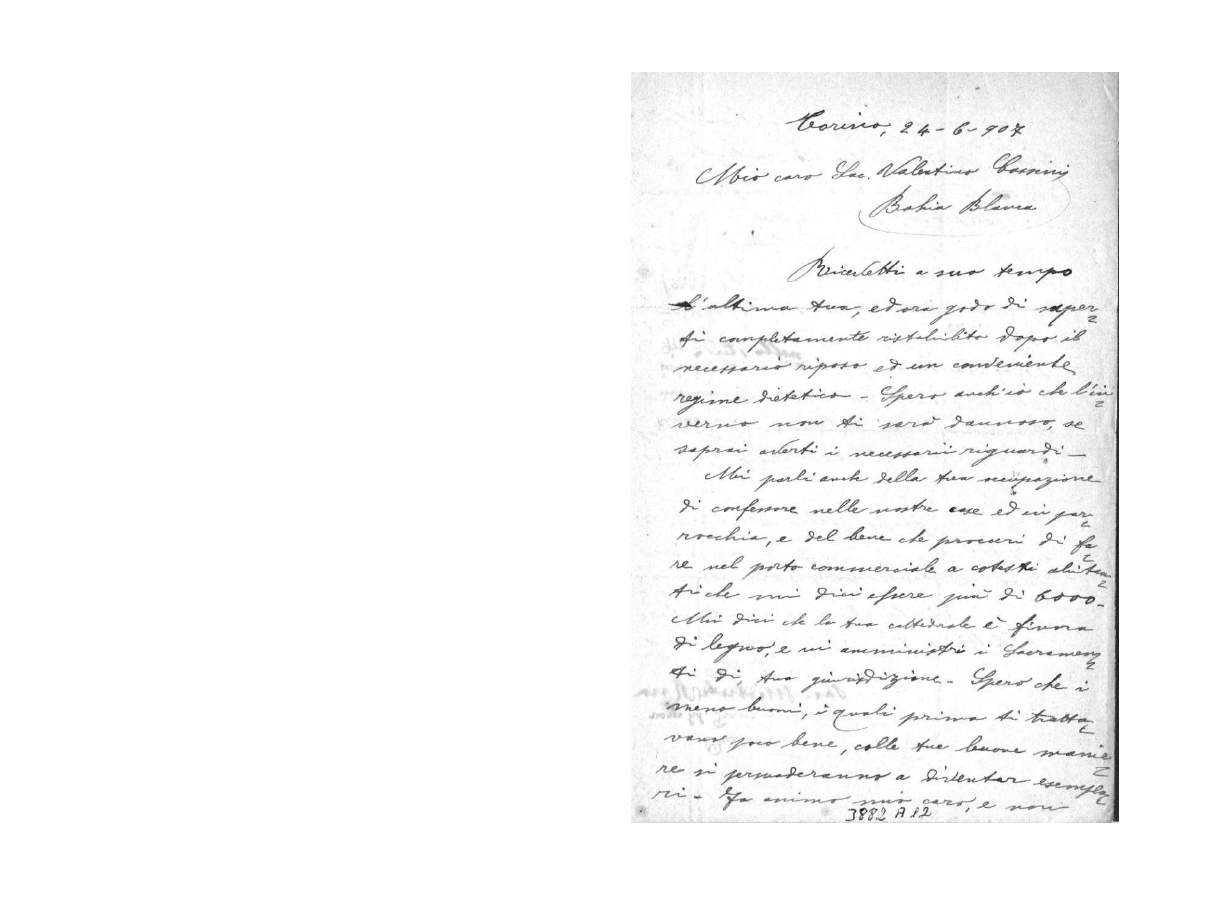 Torino, 24-6-907
Mio caro Sac. Valentino Cassini
Bahia Blanca
Ricevetti a suo tempo
l'ultima tua, ed ora godo di saper=
ti completamente ristabilito dopo il
necessario riposo ed un conveniente
regime dietetico - Spero anch'io che l'in=
verno non ti sarà dannoso, se
saprai averti i necessarii riguardi -
Mi parli anche della tua occupazione
di confessore nelle nostre case ed in par=
rocchia, e del bene che procuri di fa=
re nel porto commerciale a cotesti abitan=
ti che mi dici essere più di 6000-
Mi dici che la tua cattedrale è finora
di legno, e vi amministri i Sacramen=
ti di tua giurisdizione - Spero che i
meno buoni, i quali prima ti tratta=
vano poco bene, colle tue buone manie=
re si persuaderanno a diventar esempla=
ri - Fa animo mio caro, e non
3882 A 12